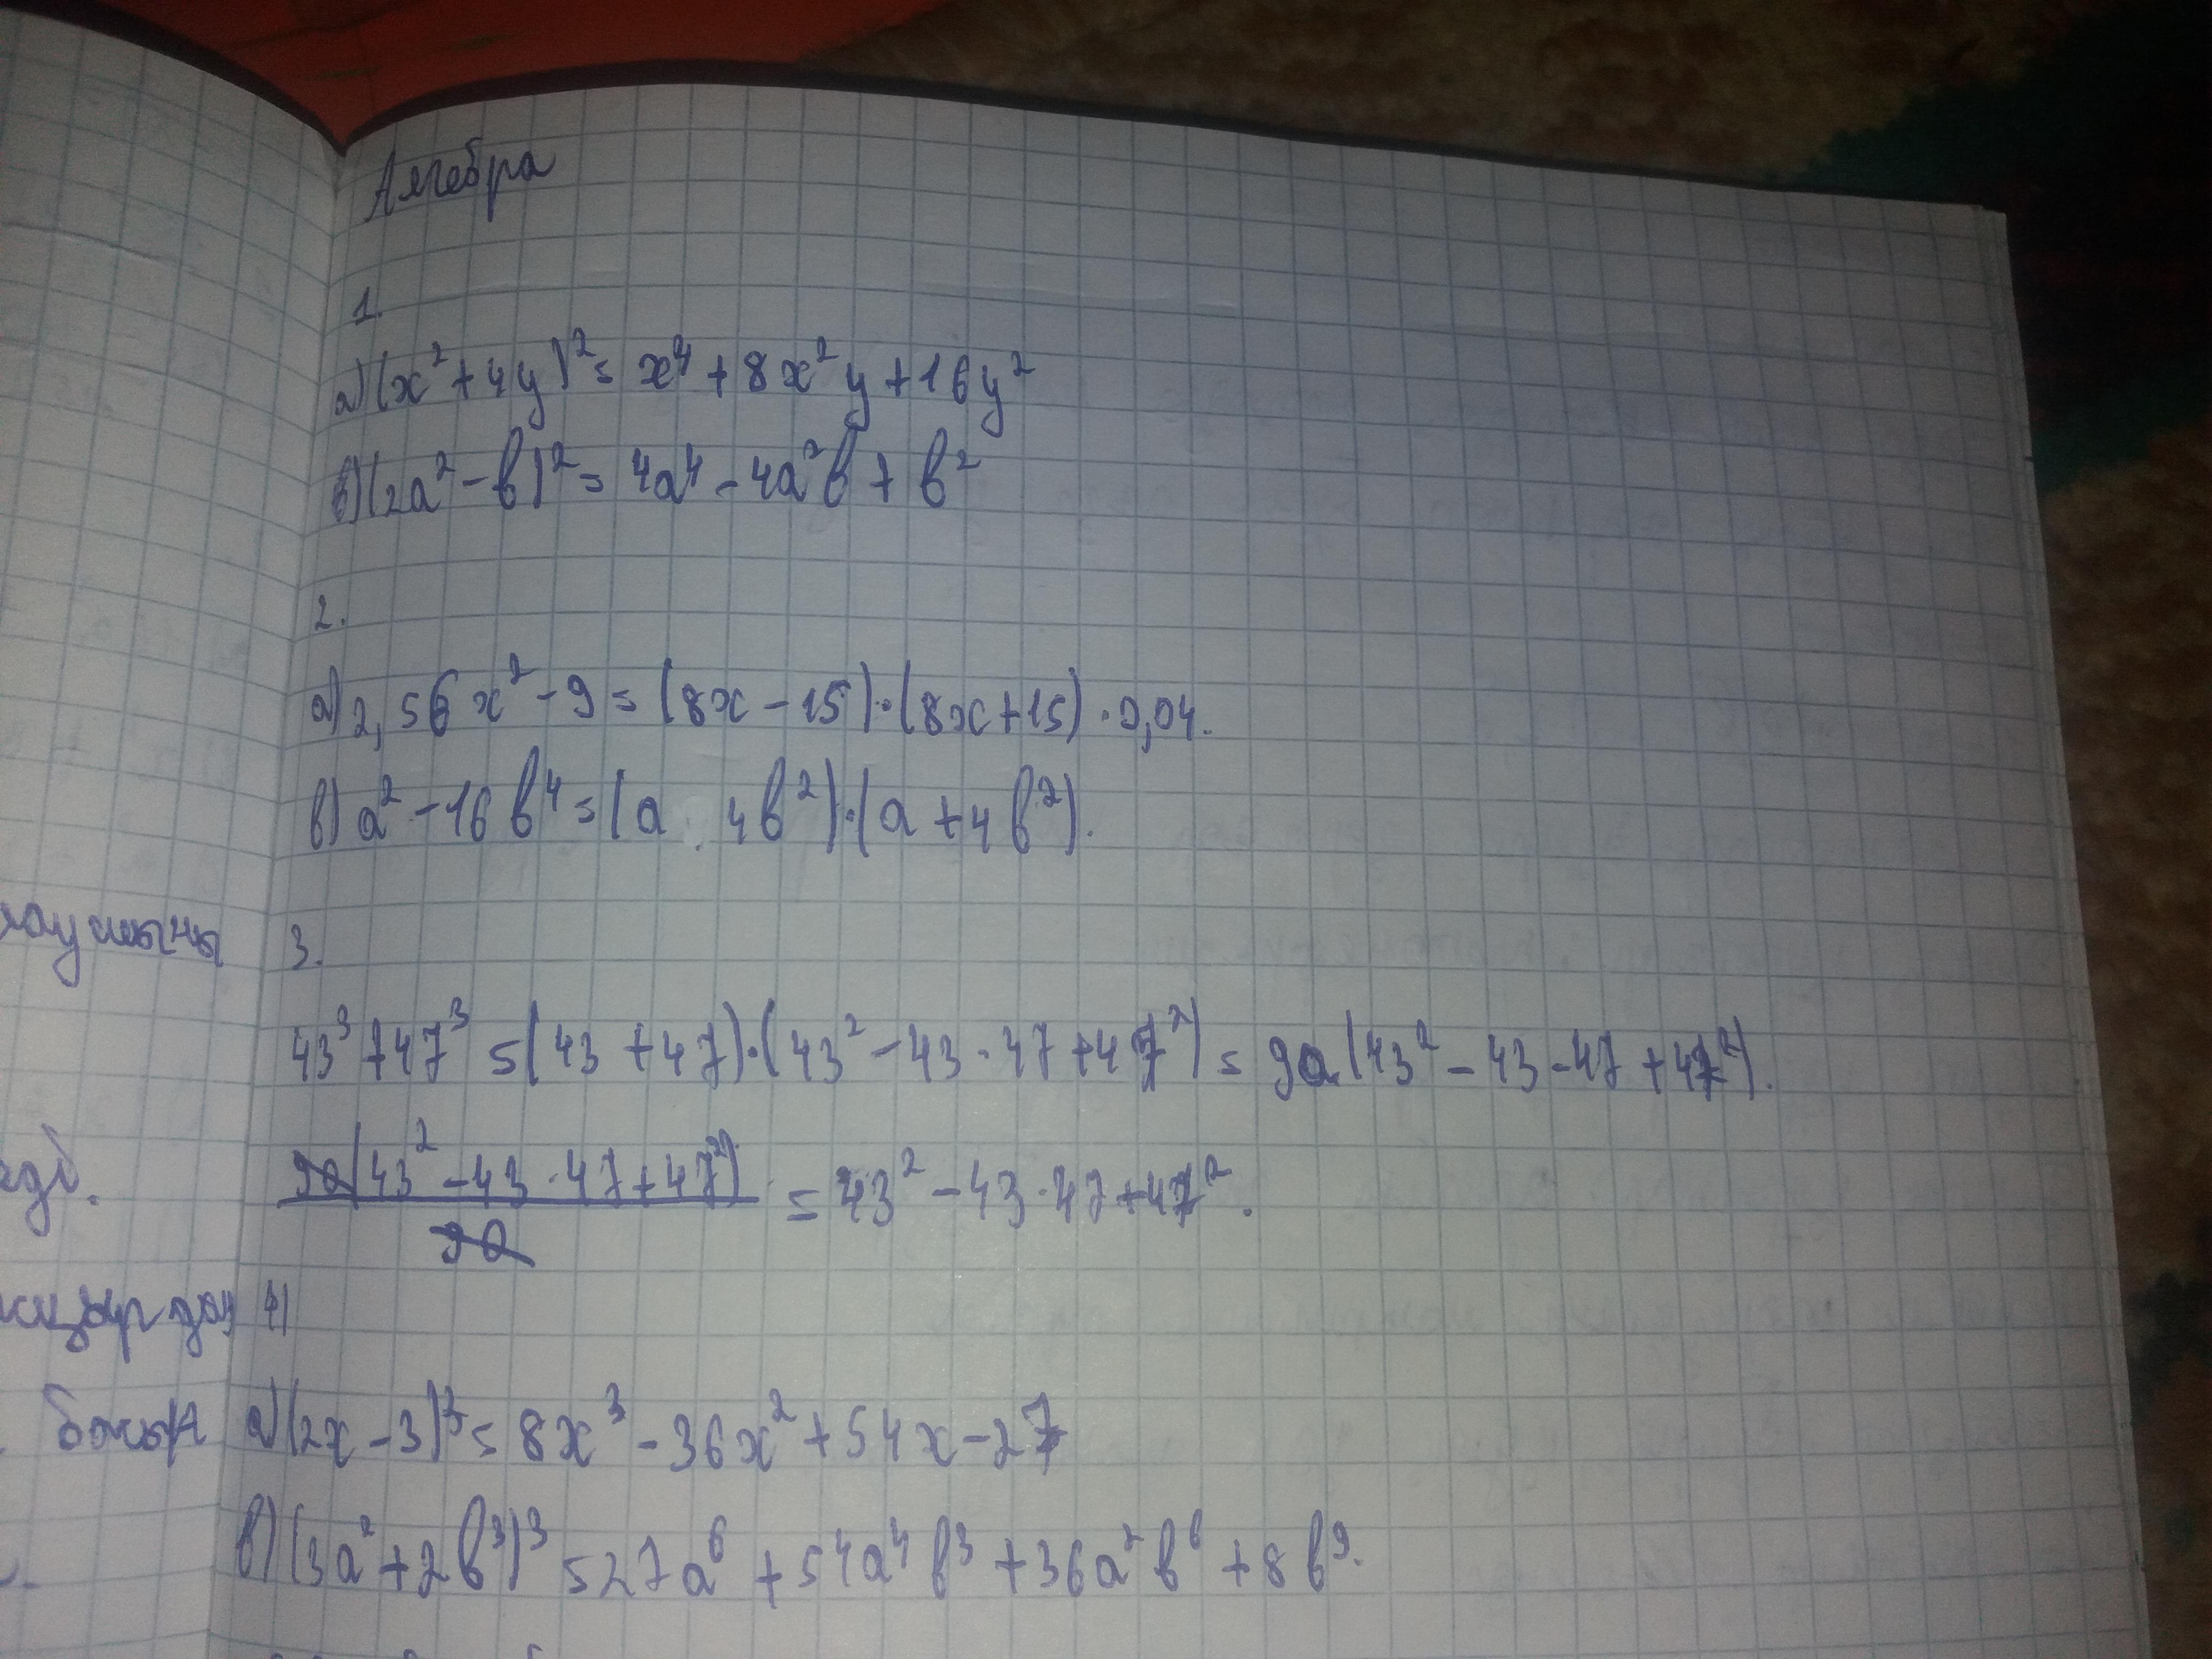 Алгебра
1.
а) (x² + 4y)² = x⁴ + 8x²y + 16y²
в) (2a² - b)² = 4a⁴ - 4a²b + b²
2.
а) 2,56x² - 9 = (8x - 15)·(8x + 15)·0,04.
в) a² - 16b⁴ = (a 4b²)·(a + 4b²).
3.
43³ + 47³ = (43 + 47)·(43² - 43·47 + 47²) = 90(43² - 43·47 + 47²).
90(43² - 43·47 + 47²)
90
= 43² - 43·47 + 47².
4)
а) (2x - 3)³ = 8x³ - 36x² + 54x - 27
в) (3a² + 2b³)³ = 27a⁶ + 54a⁴b³ + 36a²b⁶ + 8b⁹.